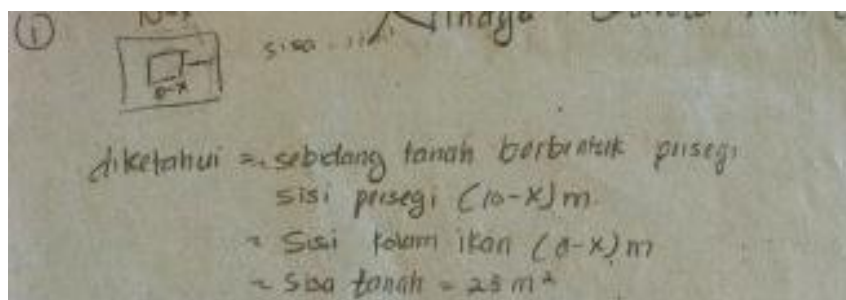 ①
10-x
sisa
8-x
diketahui = . sebidang tanah berbentuk persegi
sisi persegi (10-x) m.
= Sisi kolam ikan (8-x) m
= Sisa tanah = 28 m²